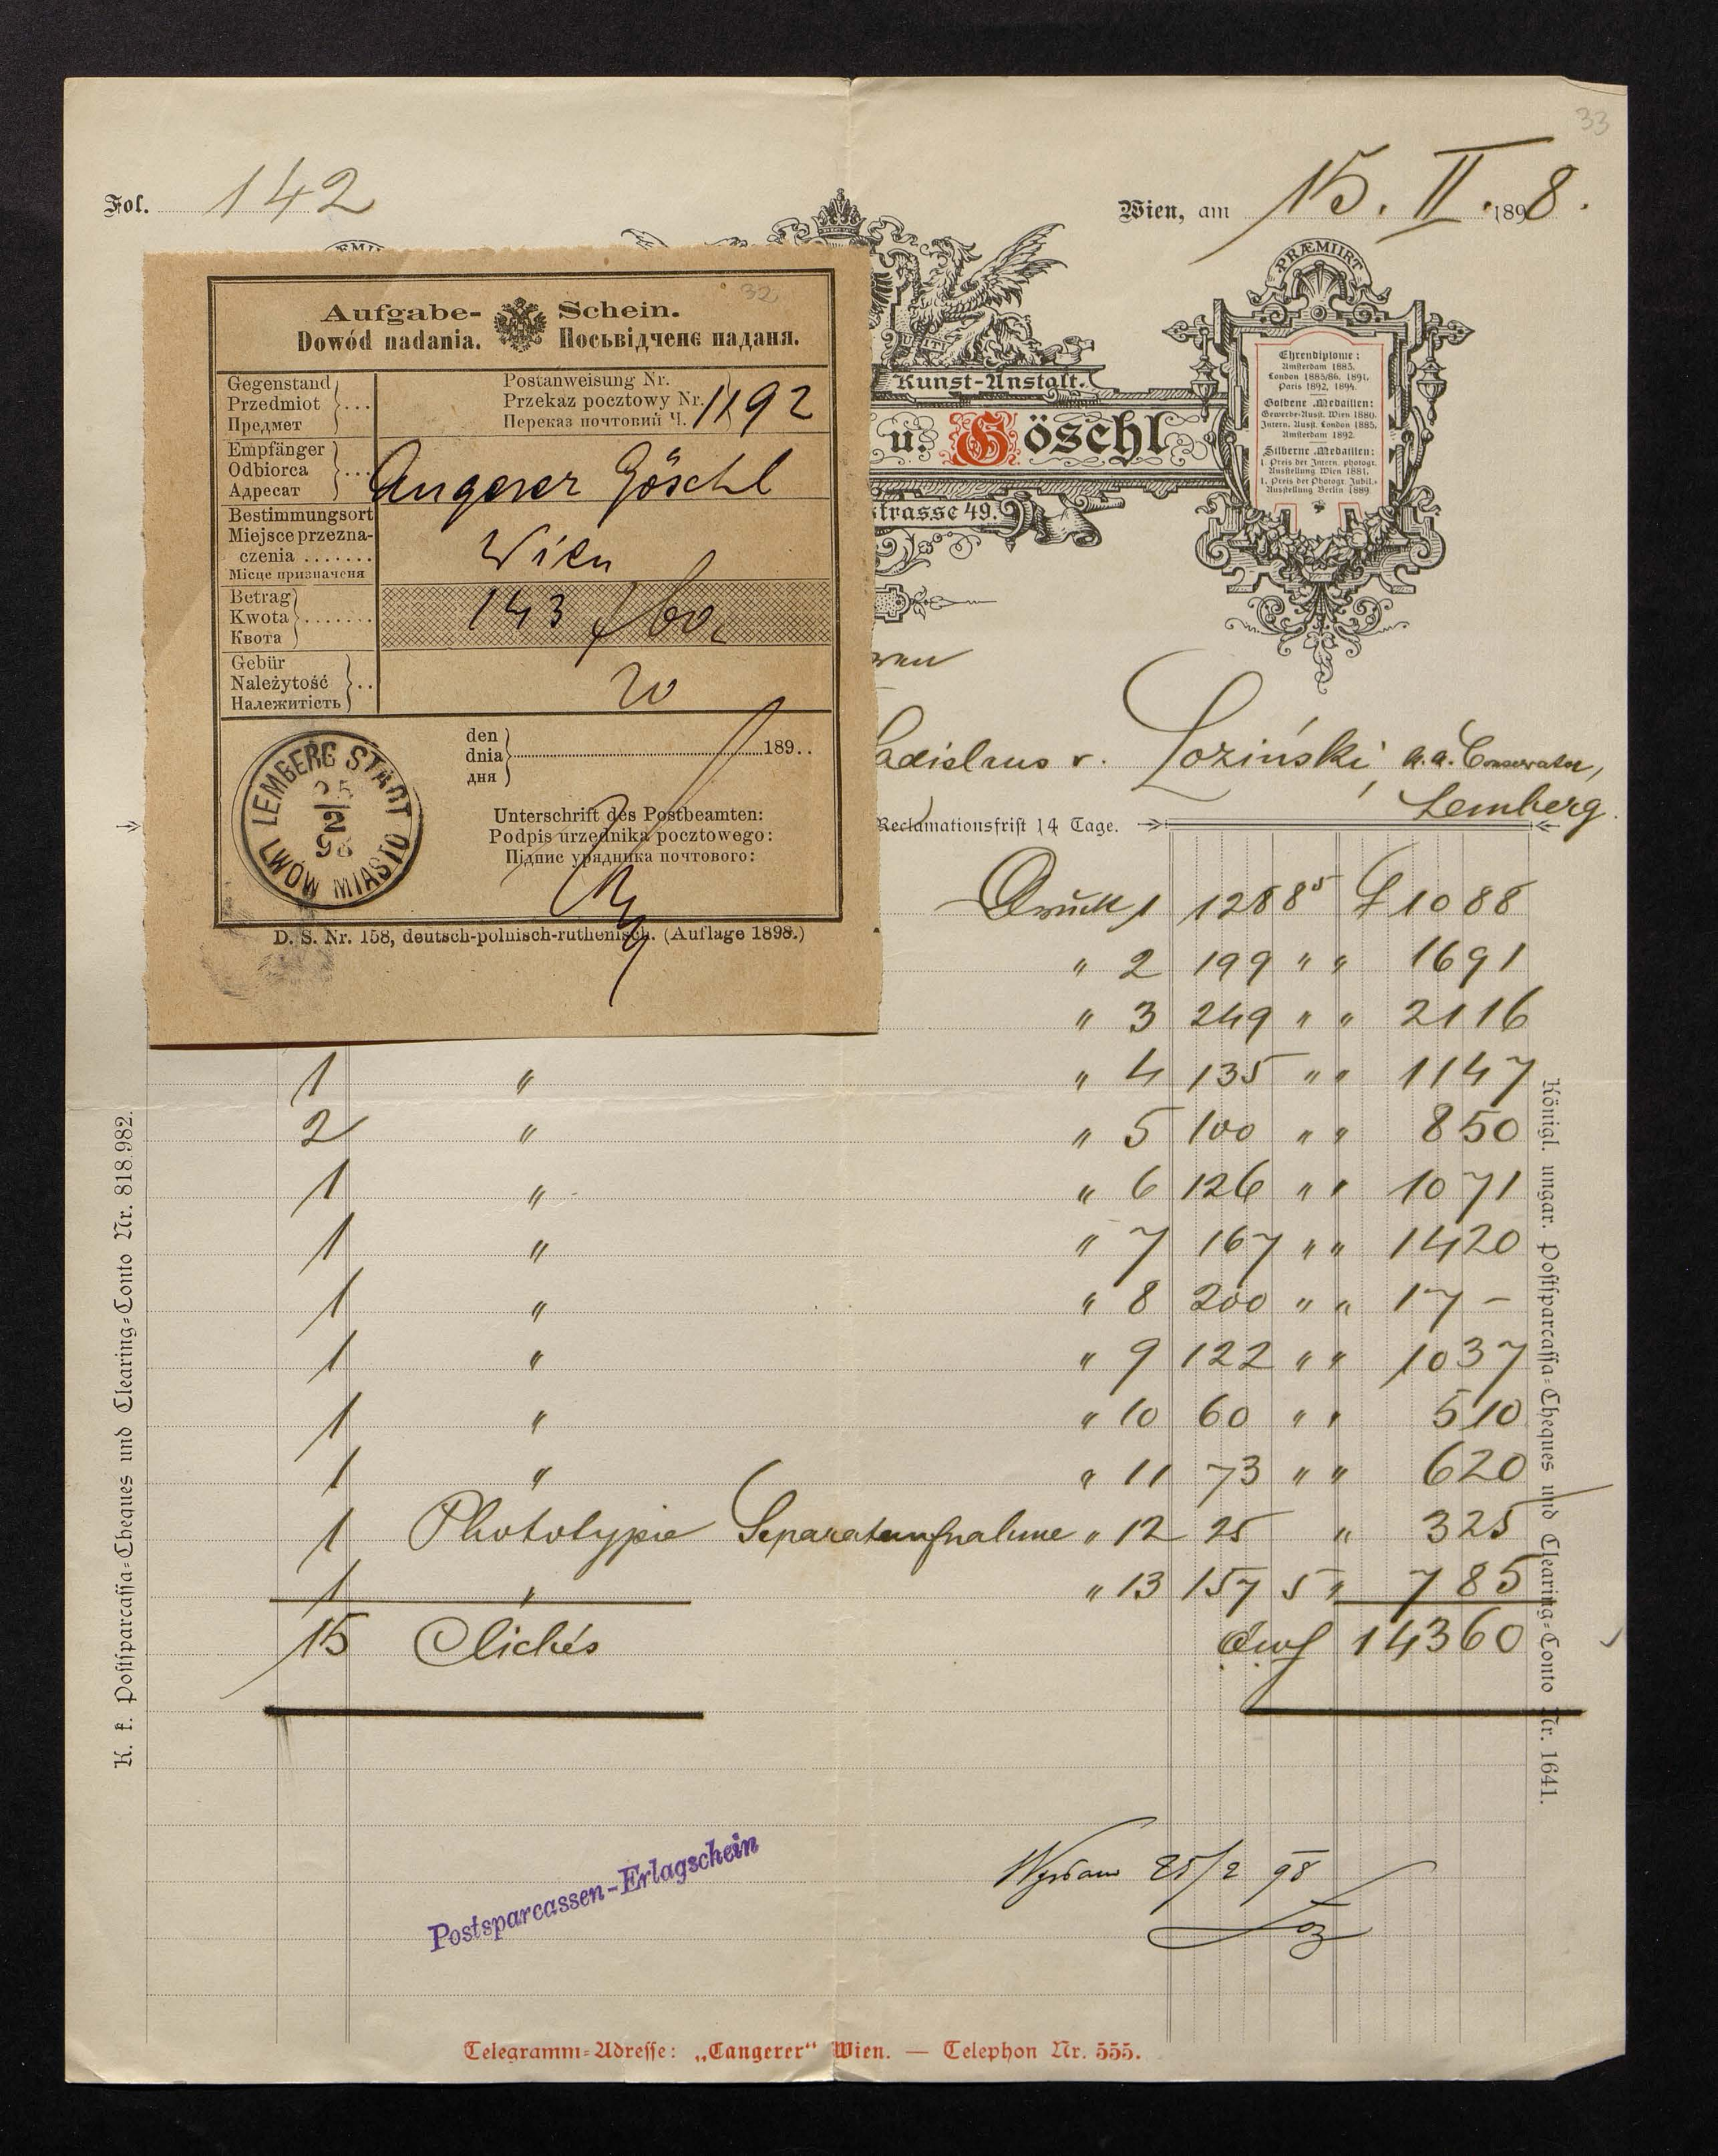 33
Fol. 142
Wien, am 15. II. 1898.
PRÆMIIRT
Ehrendiplome:
Amsterdam 1883.
London 1885/86. 1891.
Paris 1892, 1894.
Goldene Medaillen:
Gewerbe-Ausst. Wien 1880.
Intern. Ausst. London 1885.
Amsterdam 1892.
Silberne Medaillen:
1. Preis der Intern. photogr.
Ausstellung Wien 1881.
1. Preis der Photogr. Jubil.-
Ausstellung Berlin 1889.
Kunst-Anstalt.
u. Göschl
strasse 49.
32
Aufgabe- Schein.
Dowód nadania. Посьвідченє наданя.
Gegenstand
Przedmiot
Предмет
Postanweisung Nr.
Przekaz pocztowy Nr. 1192
Переказ почтовий Ч.
Empfänger
Odbiorca
Адресат
Angerer Göschl
Bestimmungsort
Miejsce przezna-
czenia .......
Місце призначеня
Wien
Betrag
Kwota
Квота
143 f 60 c
Gebür
Należytość
Належитість
20
den
dnia 189..
дня
LEMBERG STADT
25
2
98
LWÓW MIASTO
Unterschrift des Postbeamten:
Podpis urzędnika pocztowego:
Підпис урядника почтового:
D. S. Nr. 158, deutsch-polnisch-ruthenisch. (Auflage 1898.)
ladislaus v. Łoziński, k.k. Conservator,
Lemberg.
Reclamationsfrist 14 Tage.
Druck 1 128 8 5 f 10 88
" 2 199 " " 16 91
" 3 249 " " 21 16
1 " " 4 135 " " 11 47
2 " " 5 100 " " 8 50
1 " " 6 126 " " 10 71
1 " " 7 167 " " 14 20
1 " " 8 200 " " 17 –
1 " " 9 122 " " 10 37
1 " " 10 60 " " 5 10
1 " " 11 73 " " 6 20
1 Phototypie Separataufnahme " 12 25 " 3 25
1 " " 13 157 5 " 7 85
15 Clichés öwf 143 60
Wysłano 25/2 98
Łoz
Postsparcassen-Erlagschein
K. k. Postsparcassa-Cheques und Clearing-Conto Nr. 818.982.
Königl. ungar. Postsparcassa-Cheques und Clearing-Conto Nr. 1641.
Telegramm-Adresse: „Cangerer“ Wien. — Telephon Nr. 555.